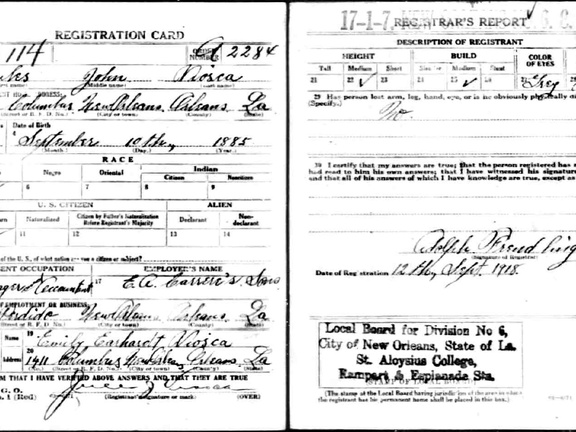 REGISTRATION CARD
114
ORDER NUMBER
A 2284
John Piosca
(Last name)
Columbus New Orleans Orleans La
(City or town) (County) (State)
Date of Birth
September 10th 1885
(Month.) (Day.) (Year.)
RACE
Negro Oriental Indian
Citizen Noncitizen
6 7 8 9
U. S. CITIZEN ALIEN
Naturalized Citizen by Father's Naturalization Before Registrant's Majority Declarant Non-declarant
11 12 13 14
of the U. S., of what nation are you a citizen or subject?
PRESENT OCCUPATION EMPLOYER'S NAME
17
Accountant
OF EMPLOYMENT OR BUSINESS
Perdido New Orleans Orleans La
(Street or R. F. D. No.) (City or town) (County) (State)
Name 19
Emily Earhardt Piosca
Address 20
1411 Columbus New Orleans, Orleans, La
(Street or R. F. D. No.) (City or town) (County) (State)
I AFFIRM THAT I HAVE VERIFIED ABOVE ANSWERS AND THAT THEY ARE TRUE
P. M. G. O.
No. 1 (Red)
(Registrant's signature or mark) (OVER)
17-1-7.
REGISTRAR'S REPORT
DESCRIPTION OF REGISTRANT
HEIGHT BUILD COLOR OF EYES
Tall Medium Short Slender Medium Stout
21 22 ✓ 23 24 25 ✓ 26 27 Grey
29 Has person lost arm, leg, hand, eye, or is he obviously physically
(Specify.)
No
30 I certify that my answers are true; that the person registered has
had read to him his own answers; that I have witnessed his signature
and that all of his answers of which I have knowledge are true, except as
Adolph
(Signature of Registrar)
Date of Registration 12th, Sept. 1918.
Local Board for Division No 6,
City of New Orleans, State of La.
St. Aloysius College,
Rampart & Esplanade Sts.
(STAMP OF LOCAL BOARD)
(The stamp of the Local Board having jurisdiction of the area in which
the registrant has his permanent home shall be placed in this box.)